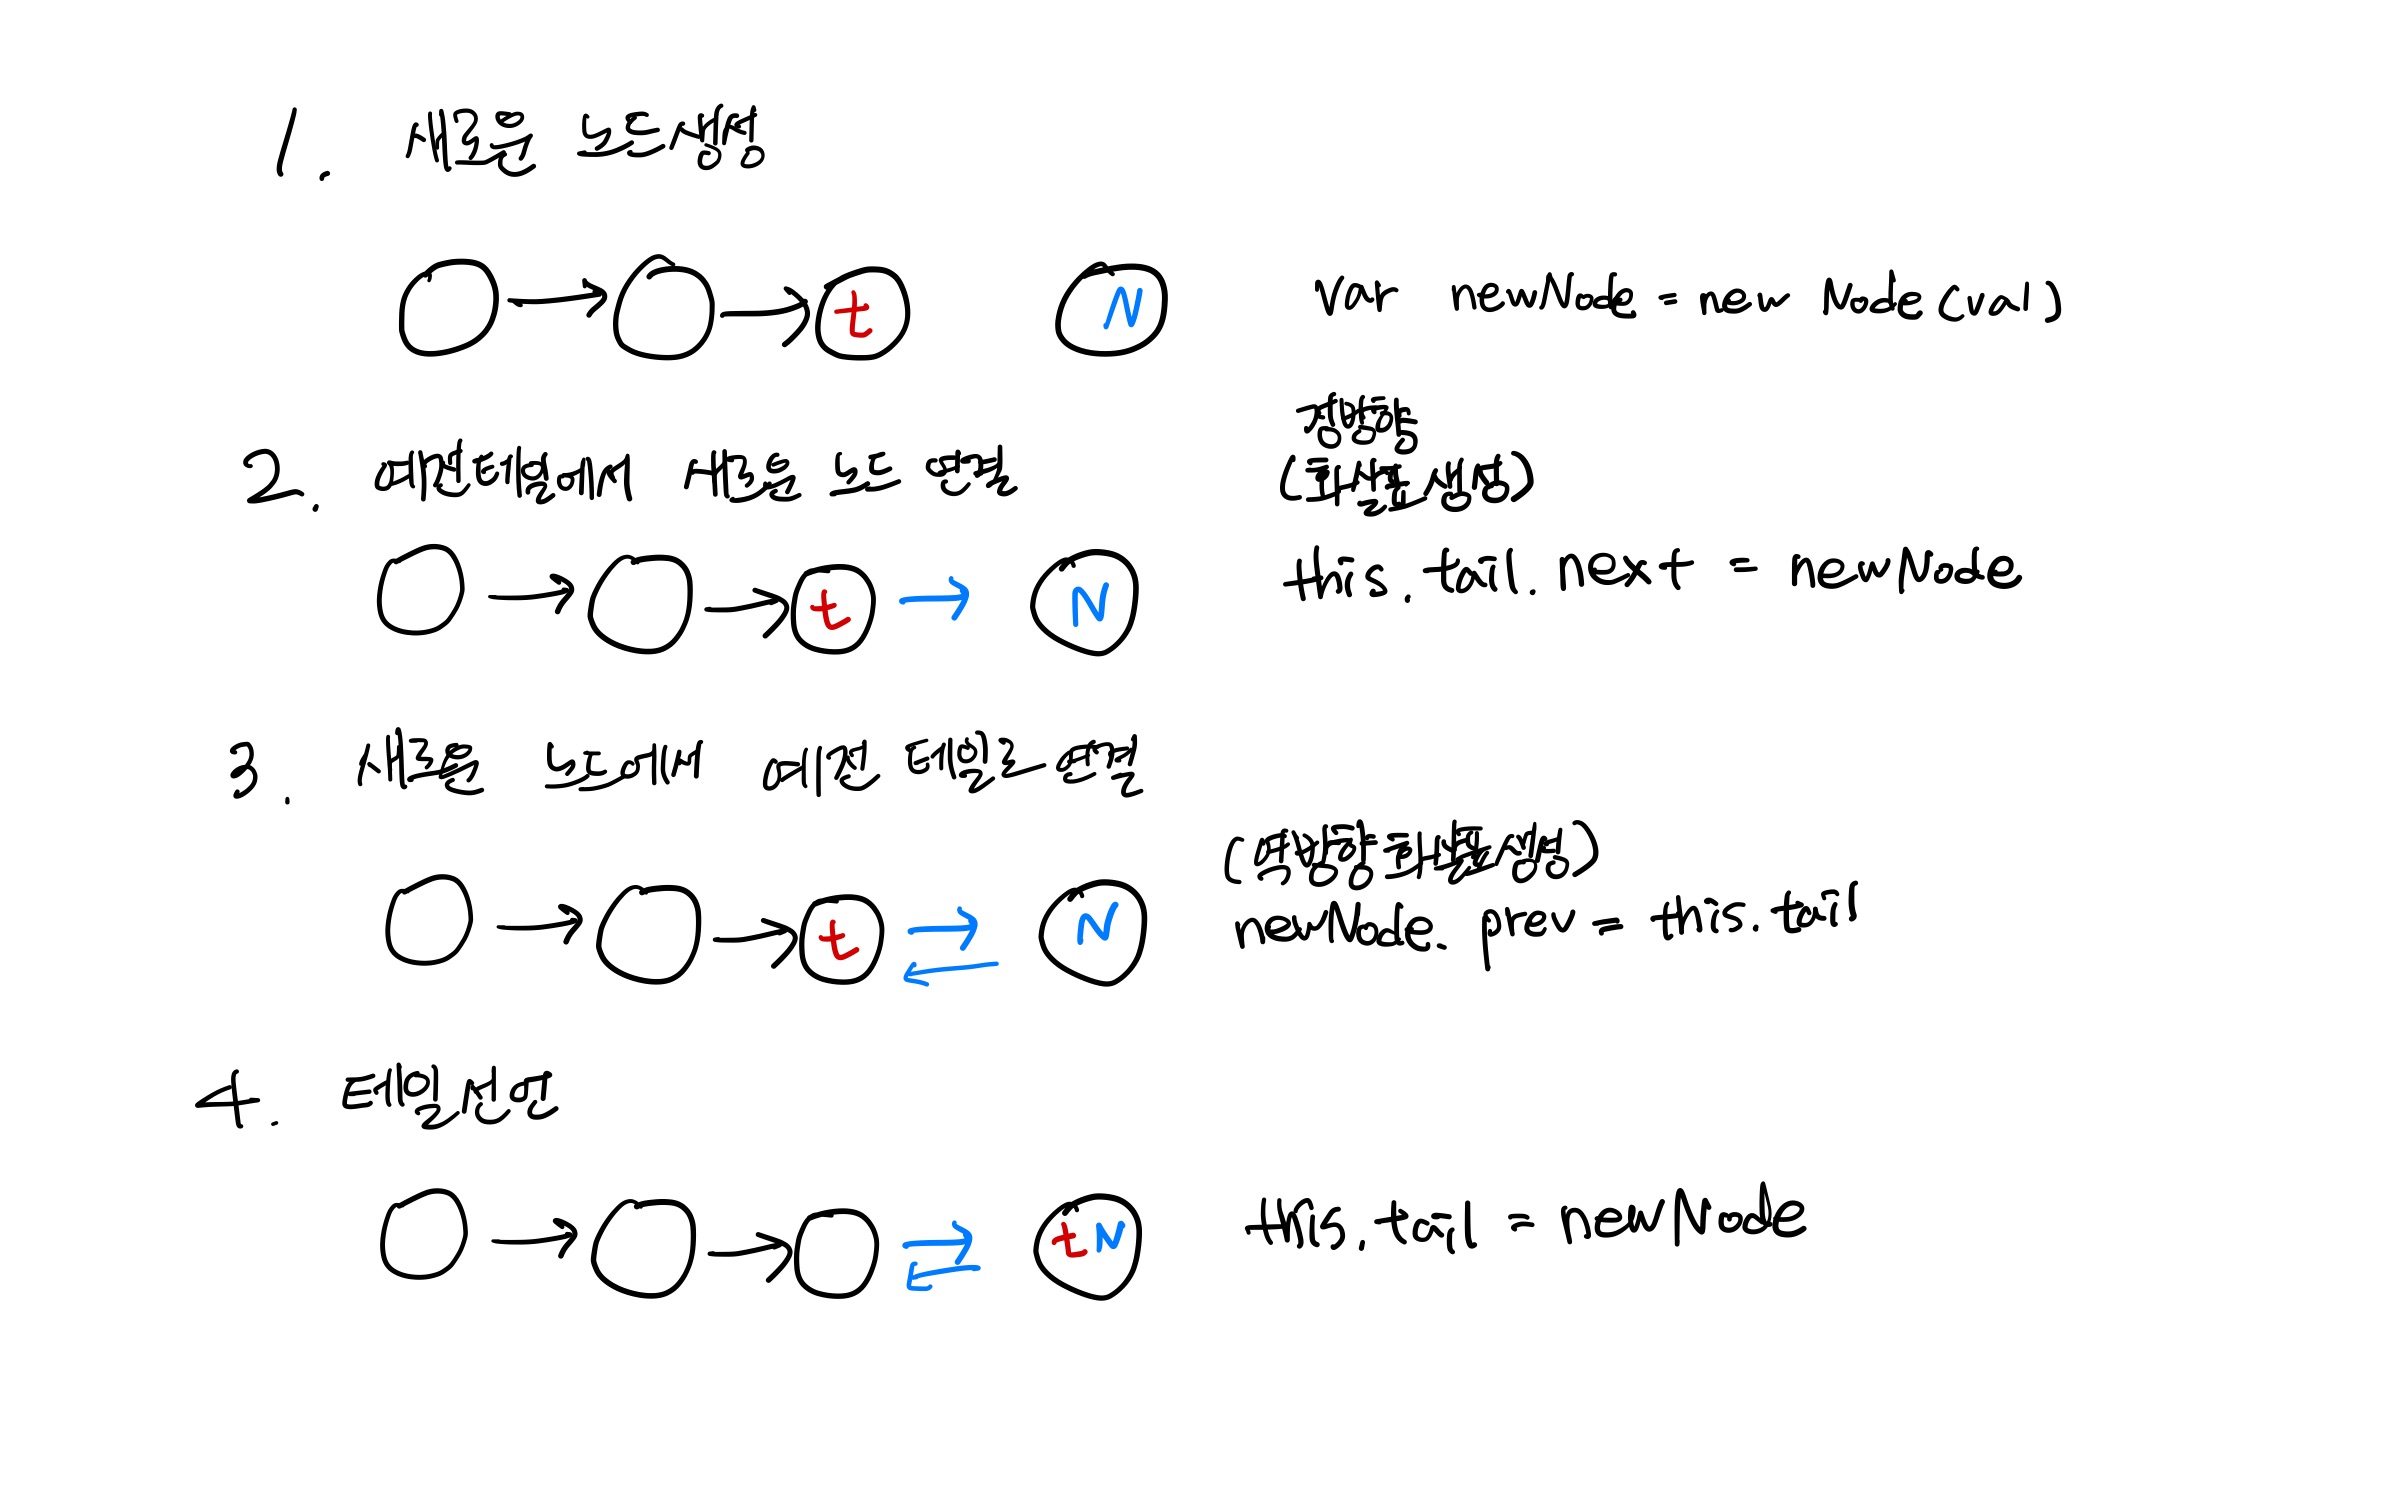 1. 새로운 노드생성
t N var newNode = new Node(val)
2. 예전테일에서 새로운 노드 연결
정방향
(화살표 생성)
t N this.tail.next = newNode
3. 새로운 노드에서 예전 테일로 연결
(역방향 화살표 생성)
t N newNode.prev = this.tail
4. 테일선언
t N this.tail = newNode